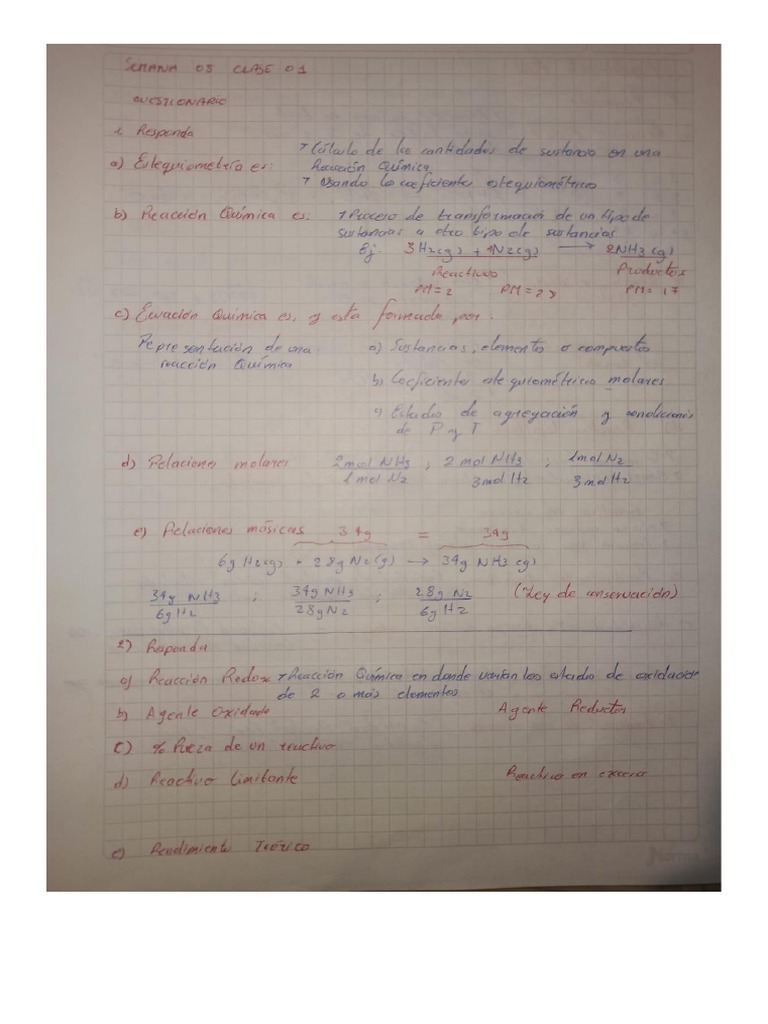 SEMANA 05 CLASE 01
CUESTIONARIO
1. Responda
a) Estequiometría es: > Cálculo de las cantidades de sustancia en una
Reacción Química
> Usando los coeficientes estequiométricos
b) Reacción Química es: > Proceso de transformación de un tipo de
sustancias a otro tipo de sustancias
Ej 3H2(g) + 1N2(g) → 2NH3(g)
Reactivos Productos
PM=2 PM=28 PM=17
c) Ecuación Química es, y esta formada por:
Representación de una a) Sustancias, elementos o compuestos
reacción Química
b) Coeficientes estequiométricos molares
c) Estados de agregación y condiciones
de P y T
d) Relaciones molares 2mol NH3/1mol N2 ; 2 mol NH3/3mol H2 ; 1mol N2/3mol H2
e) Relaciones másicas 34g = 34g
6g H2(g) + 28g N2(g) → 34g NH3(g)
34g NH3/6g H2 ; 34g NH3/28g N2 ; 28g N2/6g H2 (Ley de conservación)
2) Responda
a) Reacción Redox > Reacción Química en donde varían los estados de oxidación
de 2 o más elementos
b) Agente Oxidante Agente Reductor
c) % Pureza de un reactivo
d) Reactivo Limitante Reactivo en exceso
e) Rendimiento Teórico
Norma